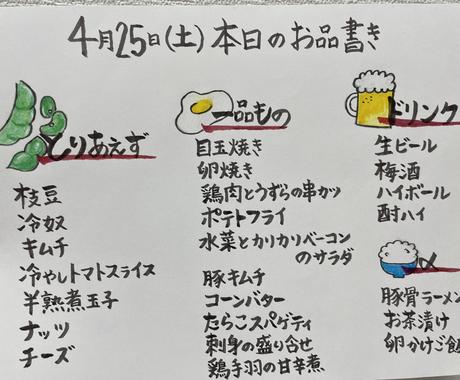 4月25日(土)本日のお品書き
とりあえず
枝豆
冷奴
キムチ
冷やしトマトスライス
半熟煮玉子
ナッツ
チーズ
一品もの
目玉焼き
卵焼き
鶏肉とうずらの串カツ
ポテトフライ
水菜とカリカリベーコン
のサラダ
豚キムチ
コーンバター
たらこスパゲティ
刺身の盛り合せ
鶏手羽の甘辛煮
ドリンク
生ビール
梅酒
ハイボール
酎ハイ
〆
豚骨ラーメン
お茶漬け
卵かけご飯